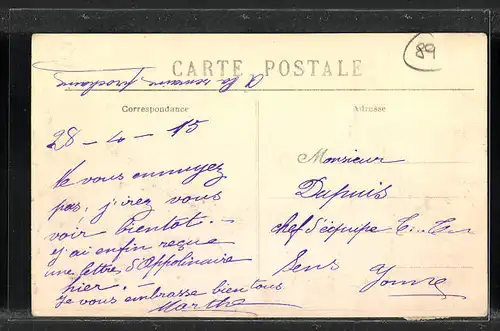 89
CARTE POSTALE
A la semaine prochaine
Correspondance
Adresse
28-4-15
Ne vous ennuyez
pas, j'irez vous
voir bientot.-
j'ai enfin reçue
une lettre d'Appolinaire
hier.-
Je vous embrasse bien tous
Marthe
Monsieur
Dupuis
chef d'équipe
Sens Yonne